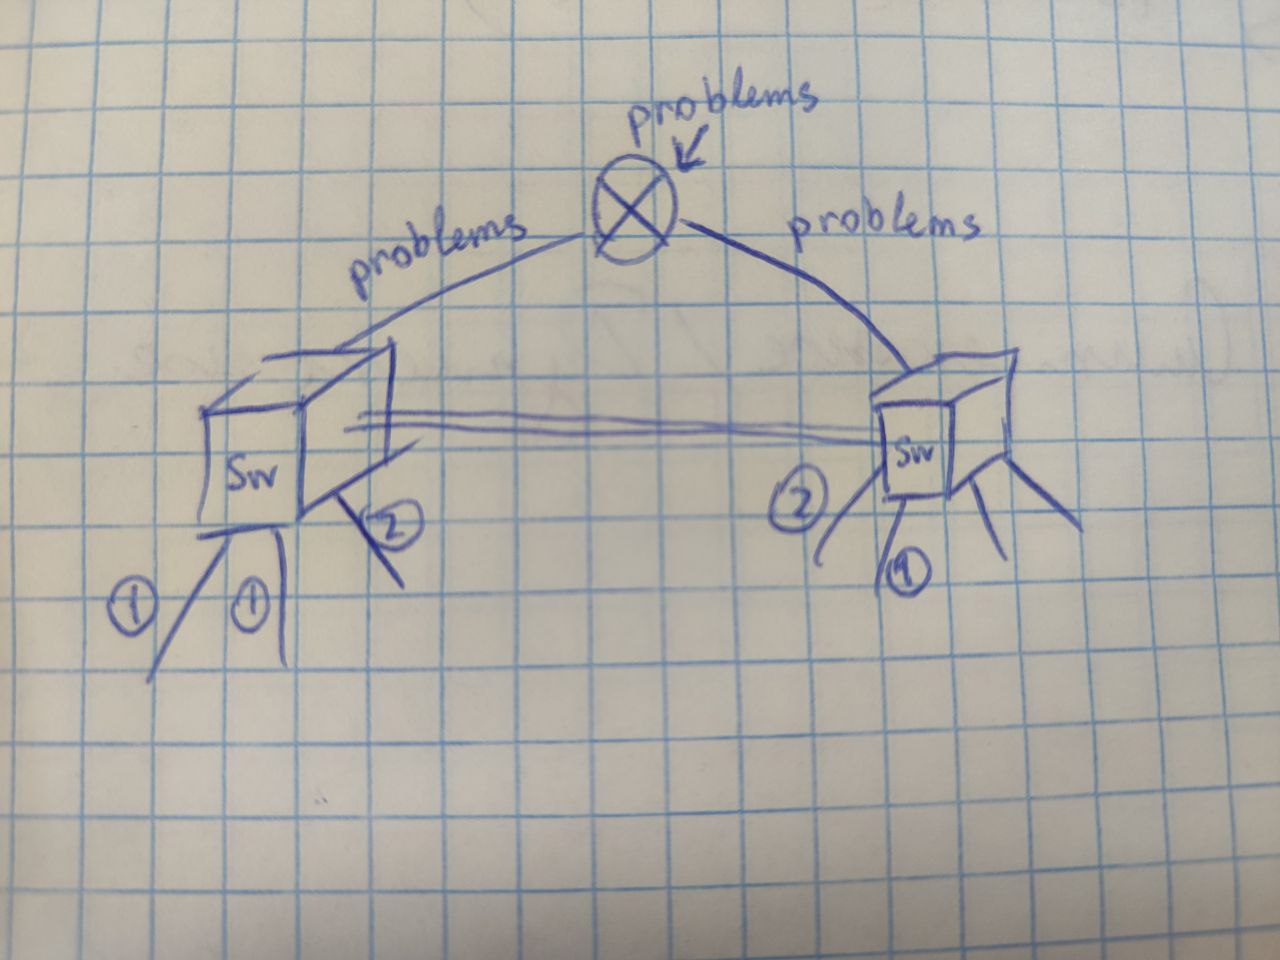 problems
problems
problems
Sw
Sw
2
2
1
1
1